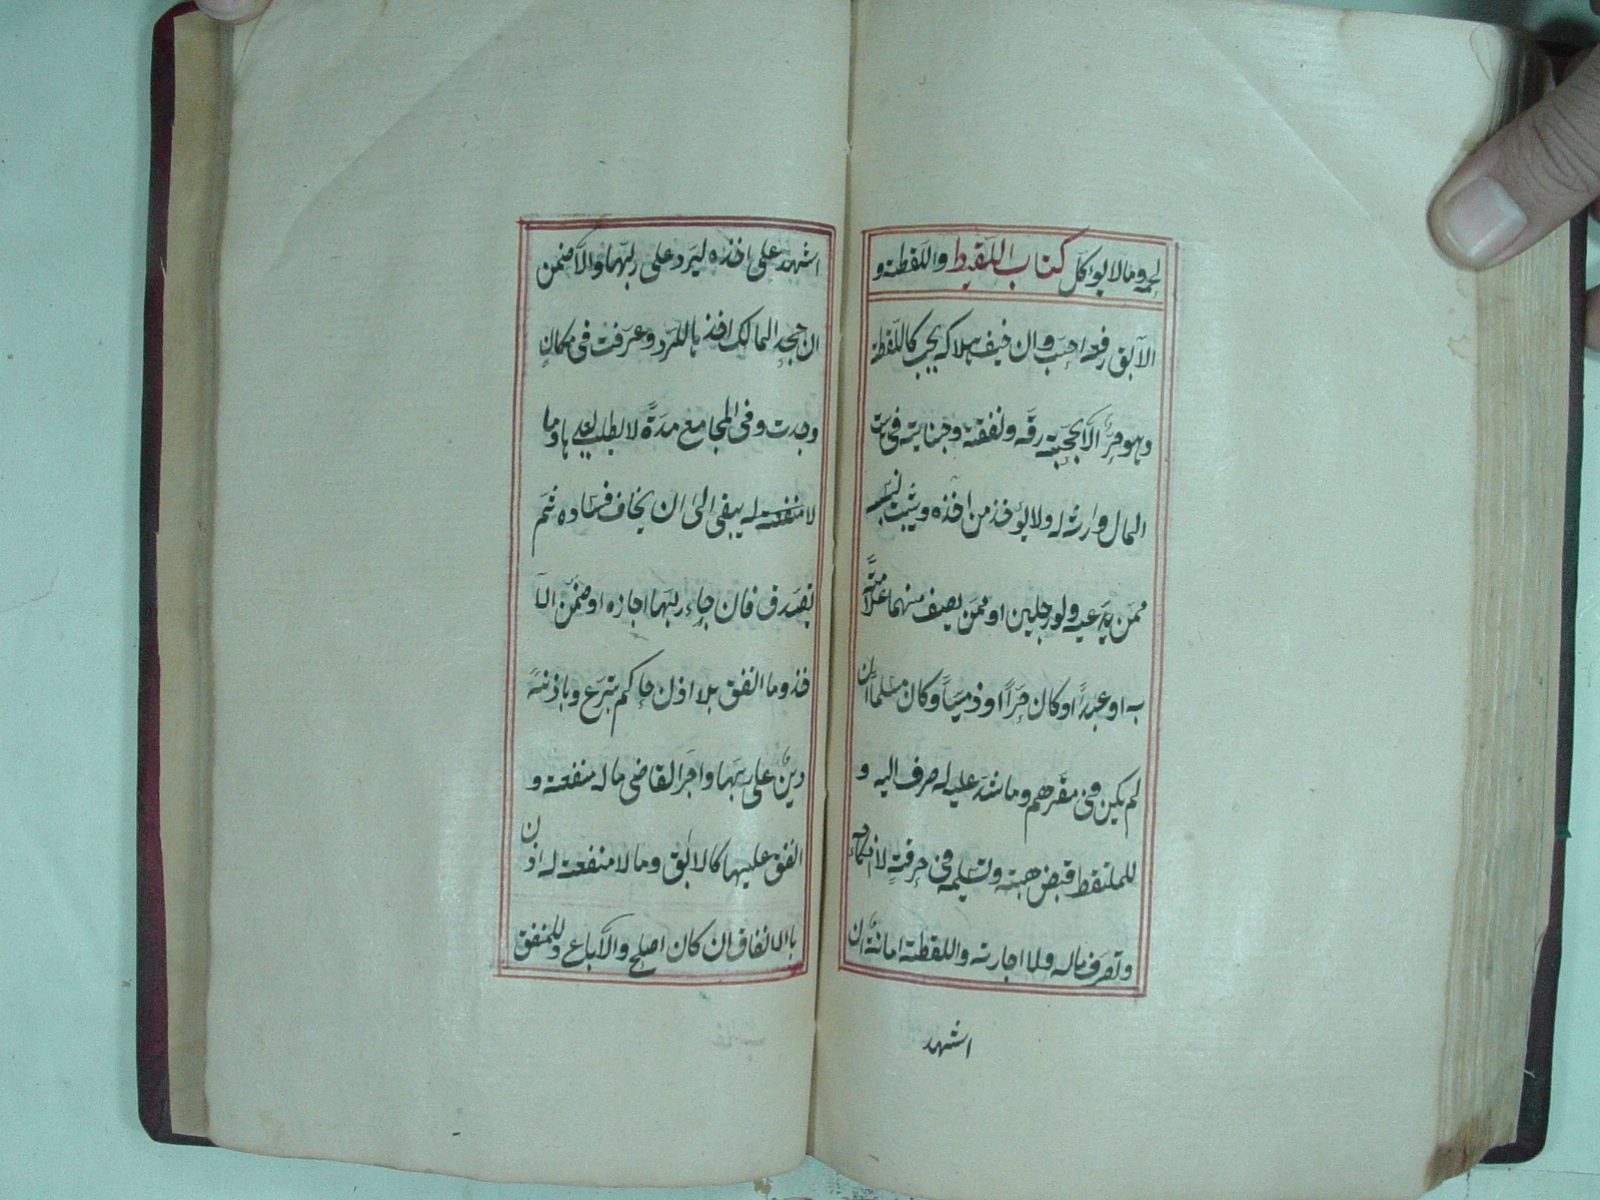 لحمه وما لا يواكل كتاب اللقيط واللقطة و
الآبق رفعه احب وان خيف هلاكه يجب كاللقطة
وهو حر الا بحجة رقه ونفقته وجنايته فى بيت
المال وارثه له ولا يؤخذ من اخذه ويثبت نسبه
ممن يدعيه ولو رجلين او ممن يصف منهما علامته
به او عبدا وكان حرا او ذميا وكان مسلما ان
لم يكن فى مقرهم وما شد عليه له صرف اليه و
للملتقط قبض هبته وتسليمه فى حرفة لا انكاحه
وتصرف ماله ولا اجارته واللقطة امانة ان
اشهد
اشهد على اخذه ليرد على ربها والا ضمن
ان جحد المالك اخذها للرد وعرفت فى مكان
وجدت وفى المجامع مدة لا يطلب بعدها وما
لا منفعة له يبقى الى ان يخاف فساده ثم
يتصدق فان جاء ربها اجازه او ضمن الآ
خذ وما انفق بلا اذن حاكم تبرع وباذنه
دين على ربها واجر القاضى ما له منفعة و
انفق عليها كالابق وما لا منفعة له اذن
باالانفاق ان كان اصلح والا باع وللمنفق